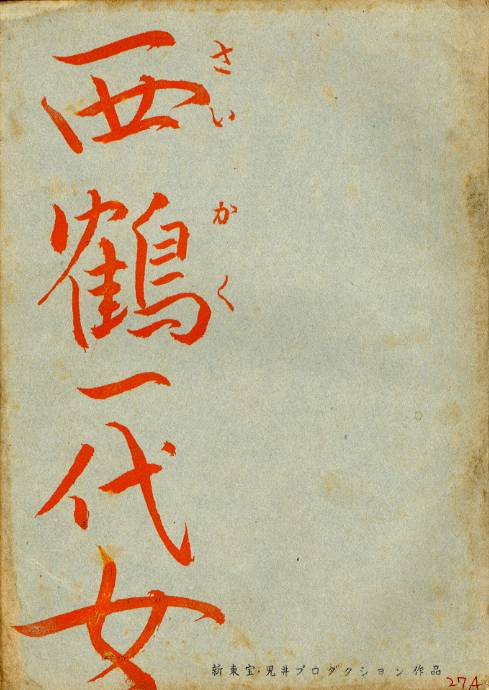 西鶴一代女
さいかく
新東宝・児井プロダクション作品
27A